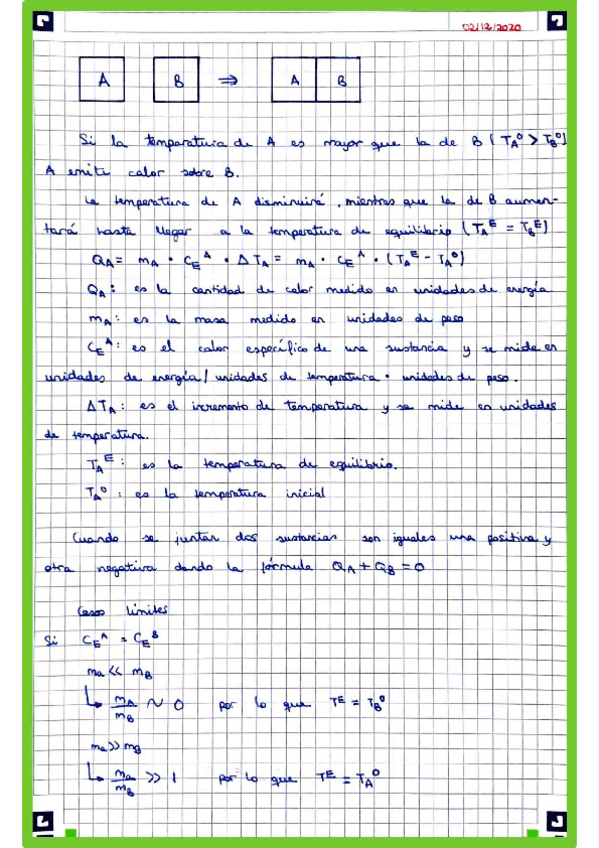 02/12/2020
A B ⇒ A B
Si la temperatura de A es mayor que la de B (T_A^0 > T_B^0)
A emite calor sobre B.
La temperatura de A disminuirá, mientras que la de B aumen-
tará hasta llegar a la temperatura de equilibrio (T_A^E = T_B^E)
Q_A = m_A · C_E^A · ΔT_A = m_A · C_E^A · (T_A^E - T_A^0)
Q_A: es la cantidad de calor medido en unidades de energía
m_A: es la masa medido en unidades de peso
C_E^A: es el calor específico de una sustancia y se mide en
unidades de energía/unidades de temperatura · unidades de peso.
ΔT_A: es el incremento de temperatura y se mide en unidades
de temperatura.
T_A^E: es la temperatura de equilibrio.
T_A^0: es la temperatura inicial
Cuando se juntan dos sustancias son iguales una positiva y
otra negativa dando la fórmula Q_A + Q_B = 0
Casos límites
Si C_E^A = C_E^B
m_A << m_B
↳ m_A/m_B ~ 0 por lo que T^E = T_B^0
m_A >> m_B
↳ m_A/m_B >> 1 por lo que T^E = T_A^0